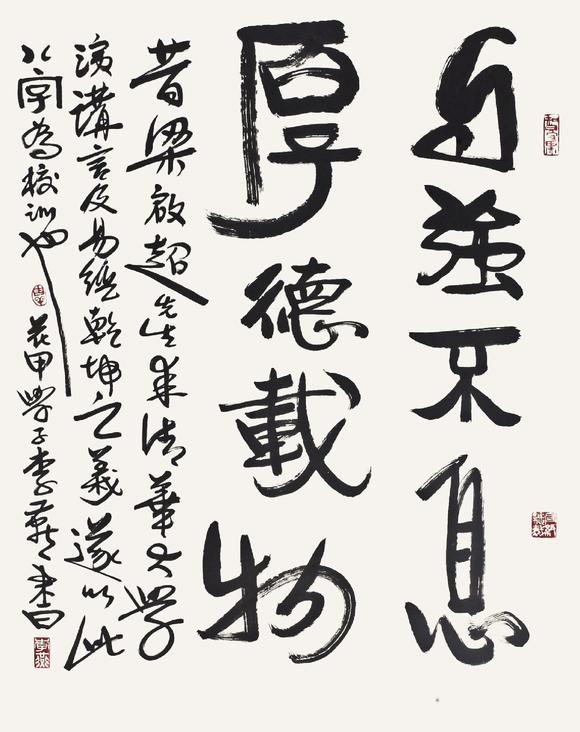 自強不息
厚德載物
昔梁啟超先生來清華大學
演講言及易經乾坤之義遂以此
八字為校訓也 花甲學子李燕書
李燕